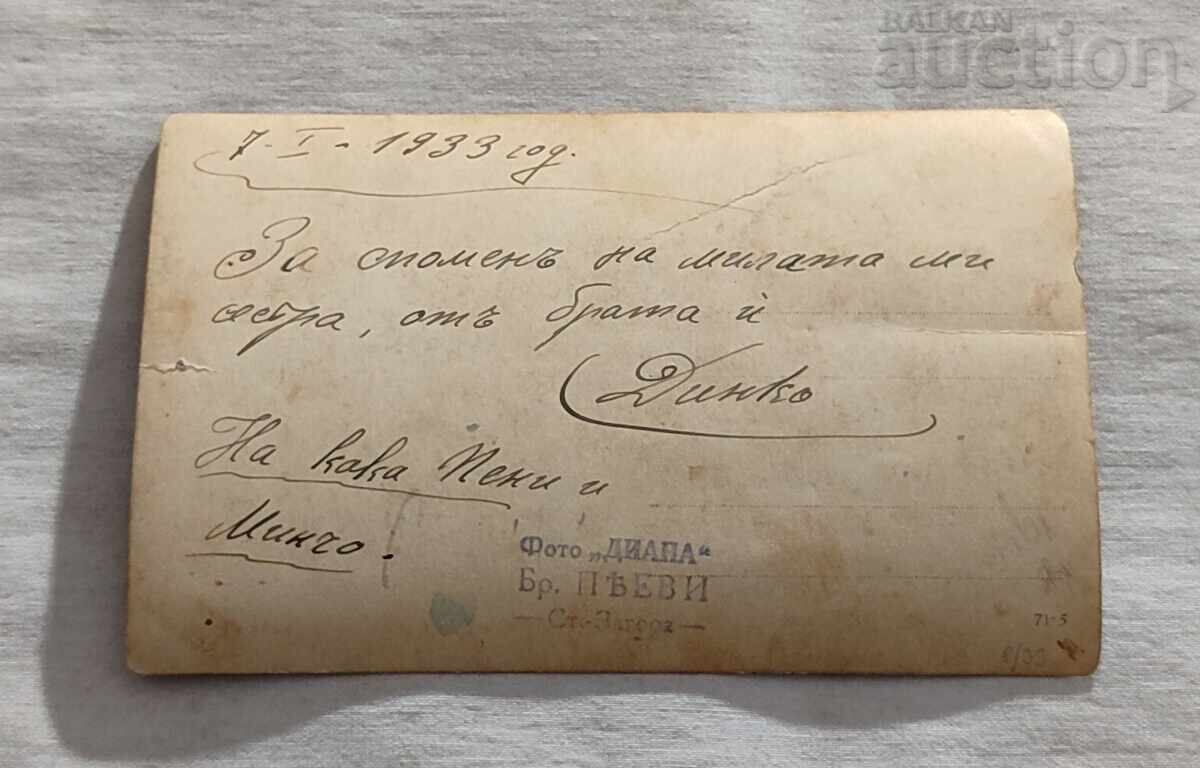 BALKAN
auction
7-I-1933 год.
За споменъ на милата ми
сестра, отъ брата ѝ
Динко
На кака Пени и
Минчо.
Фото „ДИАПА“
Бр. ПѢЕВИ
— Ст.-Загора —
71-5